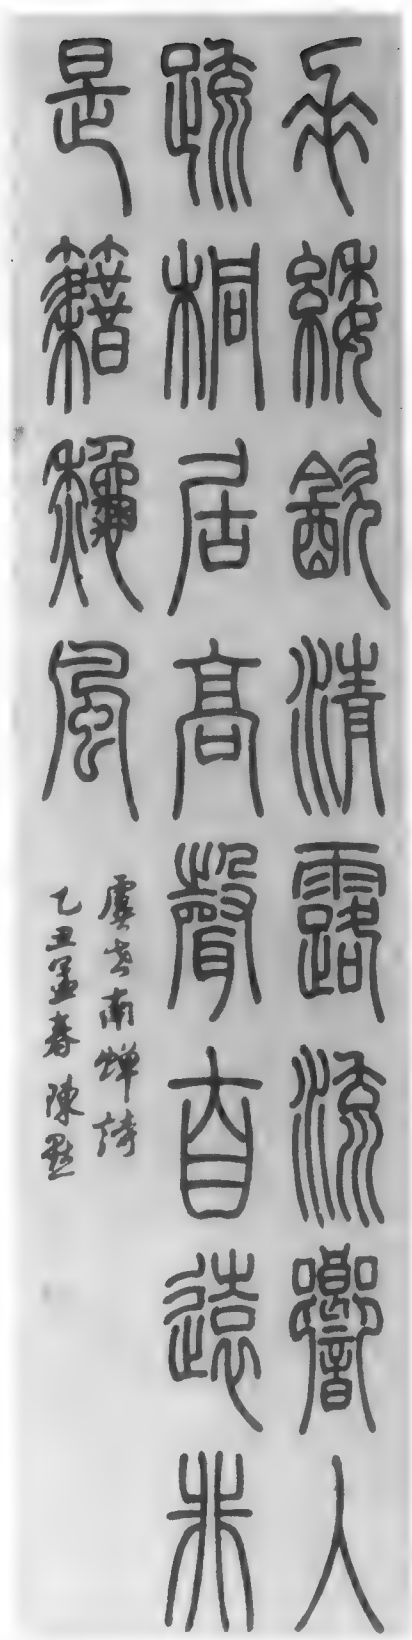 垂緌飲清露流響入
疏桐居高聲自遠非
是籍秋風
虞世南蟬詩
乙丑孟春陳